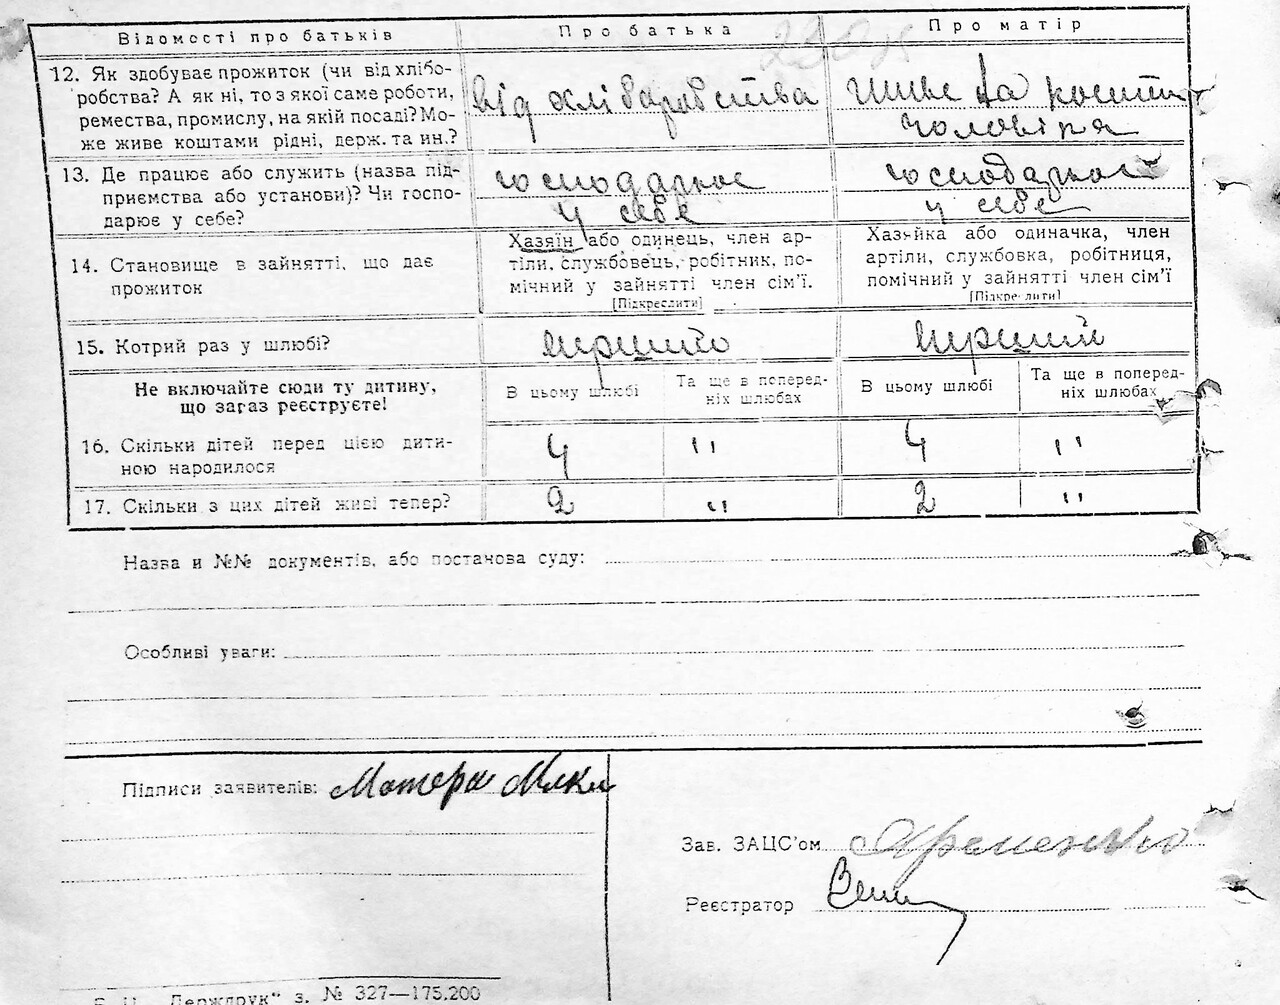 Відомості про батьків
Про батька
Про матір
12. Як здобуває прожиток (чи від хлібо-
робства? А як ні, то з якої саме роботи,
ремества, промислу, на якій посаді? Мо-
же живе коштами рідні, держ. та ин.?
від хліборобства
живе на кошти
чоловіка
13. Де працює або служить (назва під-
приємства або установи)? Чи госпо-
дарює у себе?
господарює
у себе
господарює
у себе
14. Становище в зайнятті, що дає
прожиток
Хазяїн або одинець, член ар-
тіли, службовець, робітник, по-
мічний у зайнятті член сім'ї.
[Підкреслити]
Хазяйка або одиначка, член
артіли, службовка, робітниця,
помічний у зайнятті член сім'ї
[Підкреслити]
15. Котрий раз у шлюбі?
перший
перший
Не включайте сюди ту дитину,
що загаз реєструєте!
В цьому шлюбі
Та ще в поперед-
ніх шлюбах
В цьому шлюбі
Та ще в поперед-
ніх шлюбах
16. Скільки дітей перед цією дити-
ною народилося
4
"
4
"
17. Скільки з цих дітей живі тепер?
2
"
2
"
Назва и №№ документів, або постанова суду:
Особливі уваги:
Підписи заявителів:
Зав. ЗАЦС'ом Яременко
Реєстратор
Держдрук" з. № 327—175.200